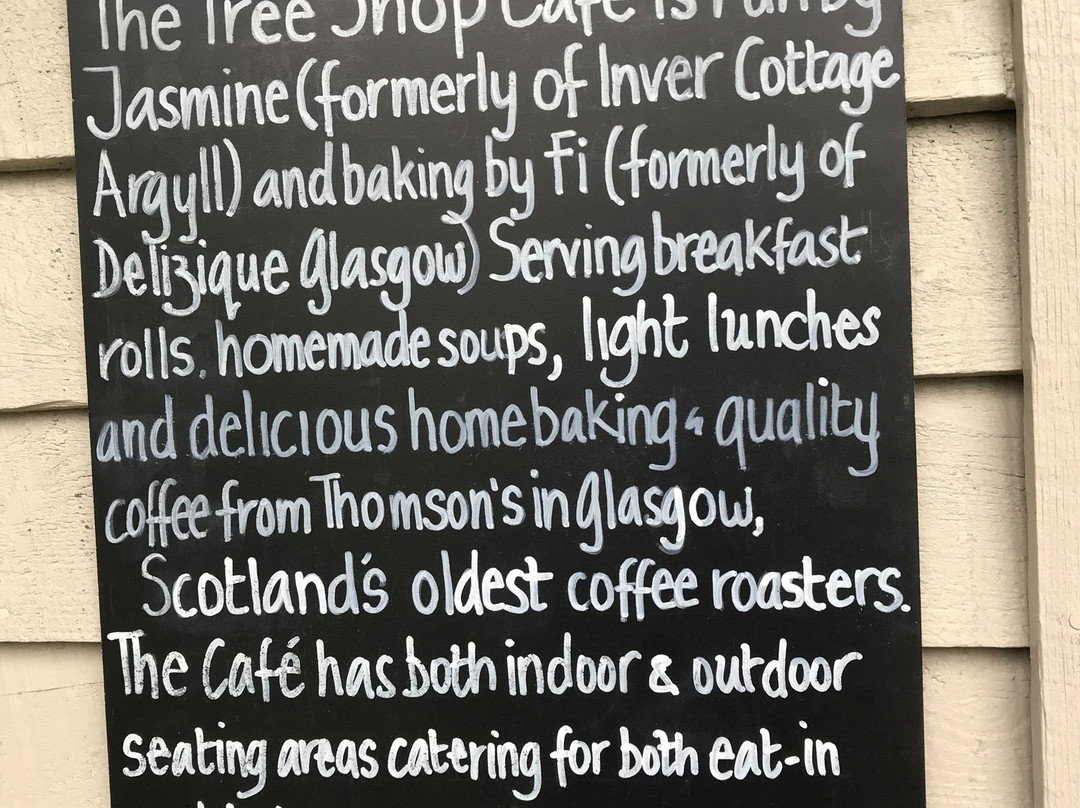 The Tree Shop Café is run by
Jasmine (formerly of Inver Cottage
Argyll) and baking by Fi (formerly of
Delizique Glasgow) Serving breakfast
rolls, homemade soups, light lunches
and delicious homebaking & quality
coffee from Thomson's in Glasgow,
Scotland's oldest coffee roasters.
The Café has both indoor & outdoor
seating areas catering for both eat-in